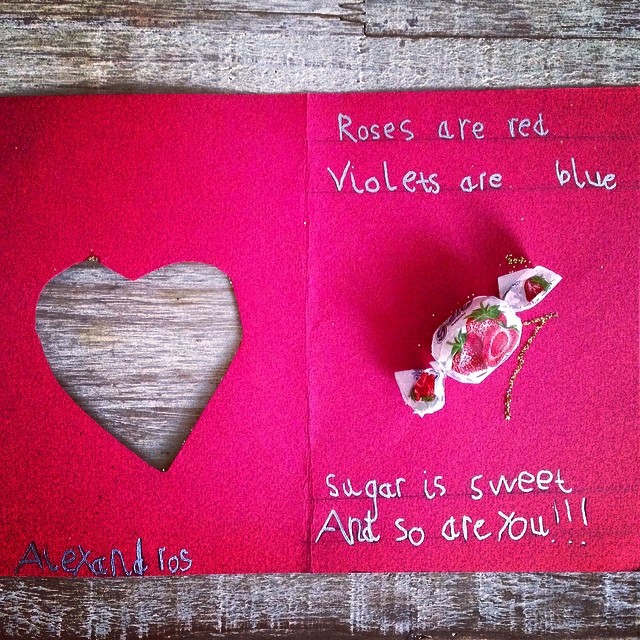 Roses are red
Violets are blue
Sugar is sweet
And so are You!!!
Alexandros